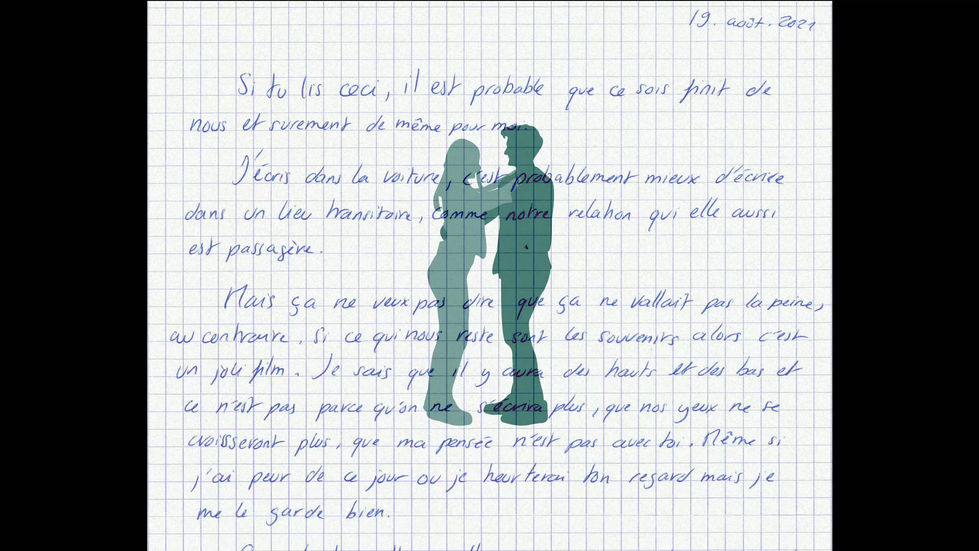 19. août. 2021
Si tu lis ceci, il est probable que ce sois finit de
nous et surement de même pour moi.
J'écris dans la voiture, c'est probablement mieux d'écrire
dans un lieu transitoire, comme notre relation qui elle aussi
est passagère.
Mais ça ne veux pas dire que ça ne vallait pas la peine,
au contraire. Si ce qui nous reste sont les souvenirs alors c'est
un joli film. Je sais que il y aura des hauts et des bas et
ce n'est pas parce qu'on ne s'écrira plus, que nos yeux ne se
croisseront plus, que ma pensée n'est pas avec toi. Même si
j'ai peur de ce jour ou je heurterai ton regard mais je
me le garde bien.